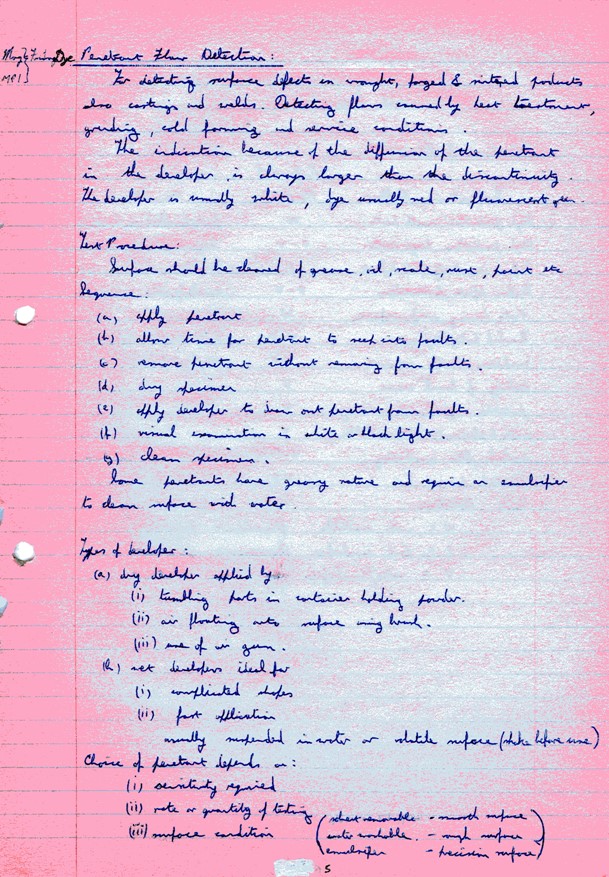 Dye Penetrant Flaw Detection:
MPI
For detecting surface defects in wrought, forged & sintered products
also castings and welds. Detecting flaws caused by heat treatment,
grinding, cold forming and service conditions.
The indication because of the diffusion of the penetrant
in the developer is always larger than the discontinuity.
The developer is usually white, dye usually red or fluorescent green.
Test Procedure:
Surface should be cleaned of grease, oil, scale, rust, paint etc
Sequence:
(a) apply penetrant
(b) allow time for penetrant to seep into faults.
(c) remove penetrant without removing from faults.
(d) dry specimen
(e) apply developer to draw out penetrant from faults.
(f) visual examination in white or black light.
(g) clean specimen.
Some penetrants have greasy nature and require an emulsifier
to clean surface with water.
Types of developer:
(a) dry developer applied by:
(i) tumbling parts in container holding powder.
(ii) air floating onto surface using brush.
(iii) use of air gun.
(b) wet developers ideal for
(i) complicated shapes
(ii) fast application
usually suspended in water or volatile surface (shake before use)
Choice of penetrant depends on:
(i) sensitivity required
(ii) rate or quantity of testing
(iii) surface condition
(solvent removable - smooth surface
water washable - rough surface
emulsifier - precision surface)
5